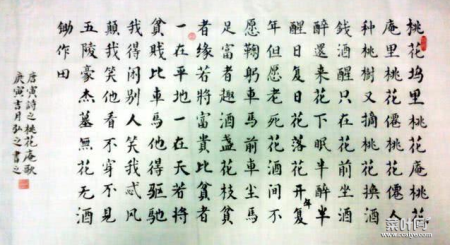 桃花坞里桃花庵桃花
庵里桃花僊桃花僊人
种桃树又摘桃花换酒
钱酒醒只在花前坐酒
醉還来花下眠半醉半
醒日复日花落花开年复
年但愿老死花酒间不
愿鞠躬車马前車尘马
足富者趣酒盏花枝贫
者缘若将富貴比貧者
一在平地一在天若将
貧賤比車馬他得驱驰
我得闲别人笑我忒风
颠我笑他看穿不見
五陵豪杰墓無花无酒
锄作田
唐寅詩之桃花庵歌
庚寅吉月弘之書之